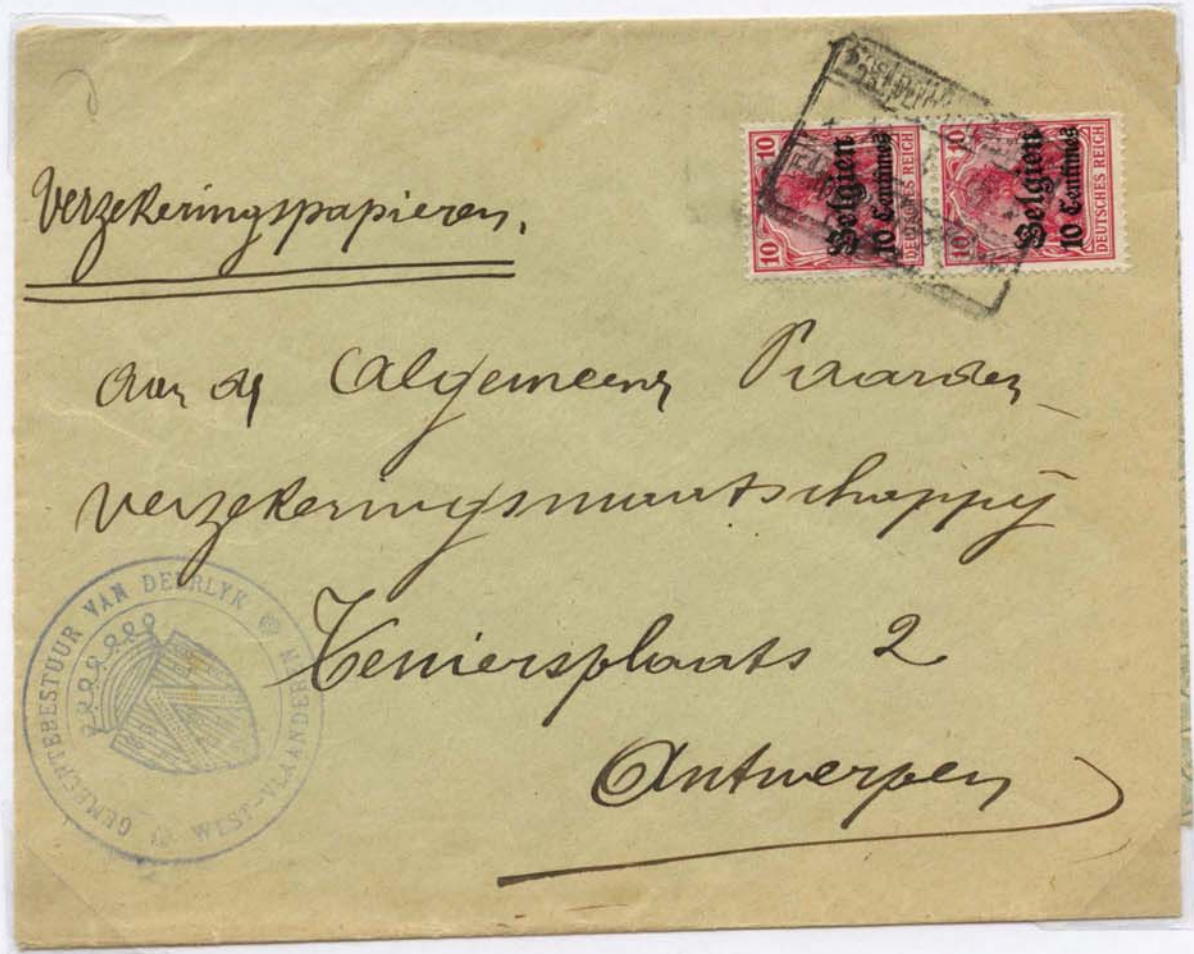 Verzekeringspapieren.
10 10 Belgien 10 Centimes DEUTSCHES REICH
10 10 Belgien 10 Centimes DEUTSCHES REICH
Aan de Algemeene Paarden-
verzekeringsmaatschappij
Teniersplaats 2
Antwerpen
GEMEENTEBESTUUR VAN DEERLYK
WEST-VLAANDEREN